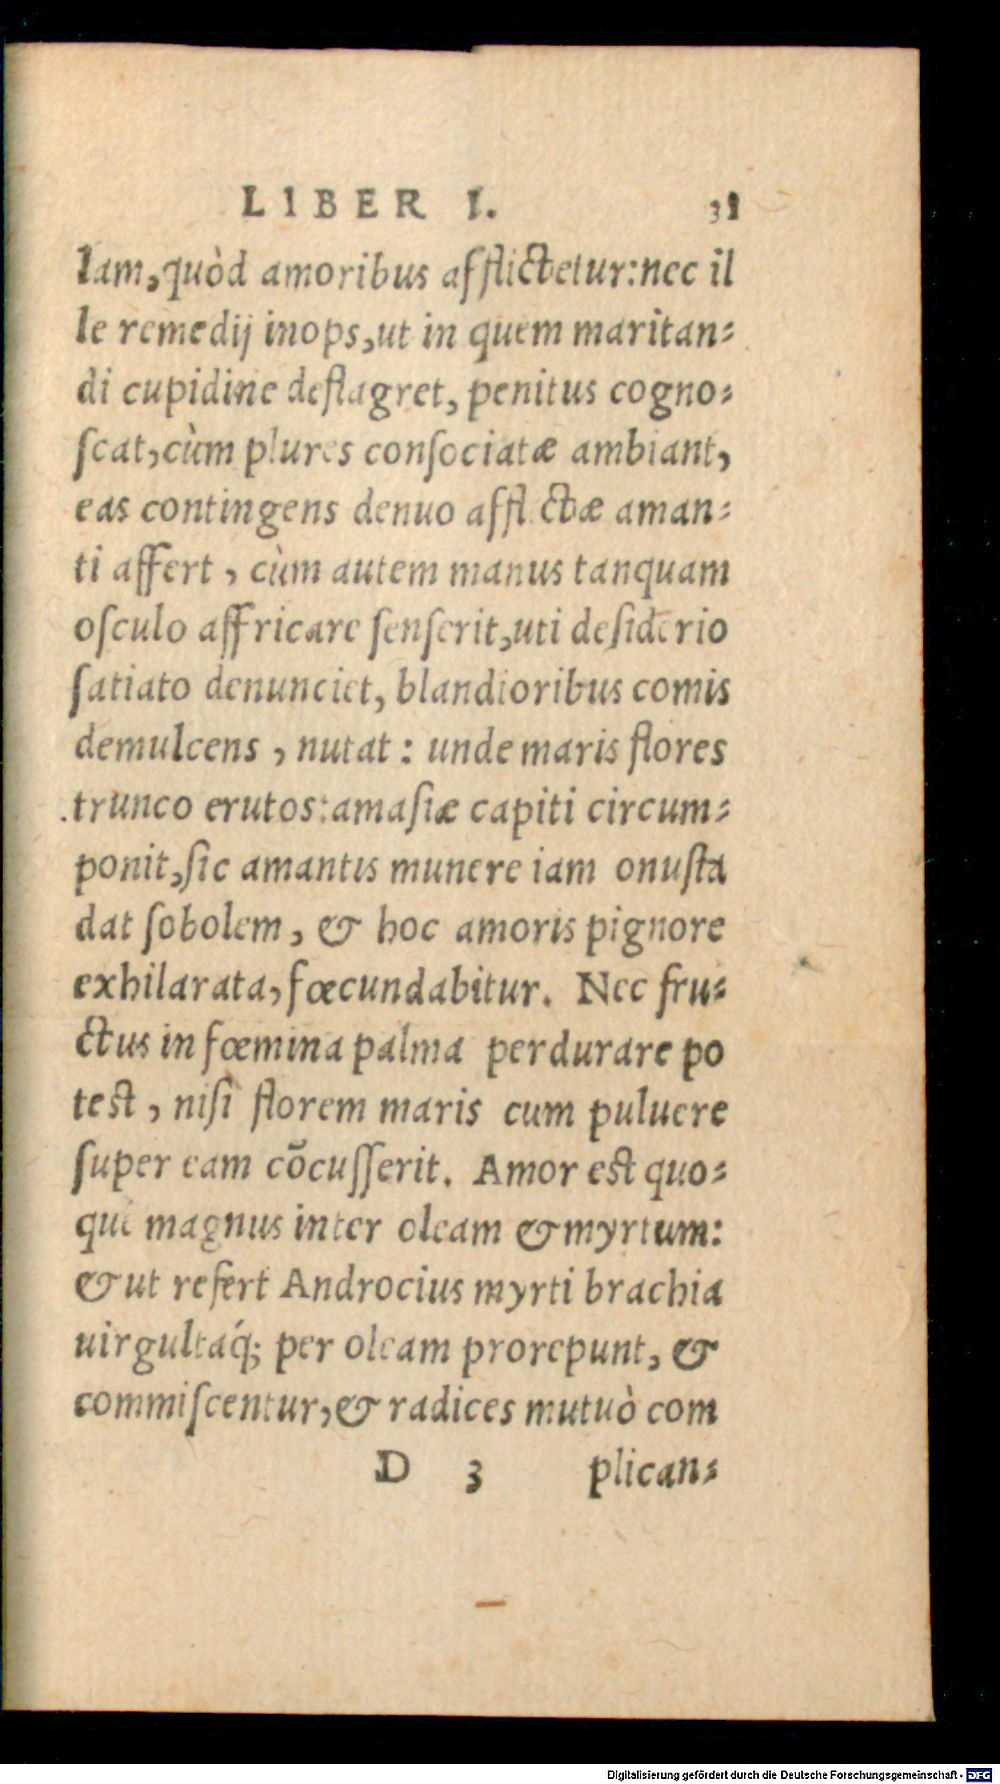 LIBER I. 31
lam, quòd amoribus afflictetur: nec il
le remedij inops, ut in quem maritan-
di cupidine deflagret, penitus cogno-
ſcat, cùm plures conſociatæ ambiant,
eas contingens denuo affl ctæ aman-
ti affert, cùm autem manus tanquam
oſculo affricare ſenſerit, uti deſiderio
ſatiato denunciet, blandioribus comis
demulcens, nutat: unde maris flores
trunco erutos: amaſiæ capiti circum-
ponit, ſic amantis munere iam onuſta
dat ſobolem, & hoc amoris pignore
exhilarata, fœcundabitur. Nec fru-
ctus in fœmina palma perdurare po
test, niſi florem maris cum puluere
ſuper eam cōcuſſerit. Amor est quo-
que magnus inter oleam & myrtum:
& ut refert Androcius myrti brachia
uirgultaq́; per oleam prorepunt, &
commiſcentur, & radices mutuò com
D 3 plican-
Digitalisierung gefördert durch die Deutsche Forschungsgemeinschaft - DFG